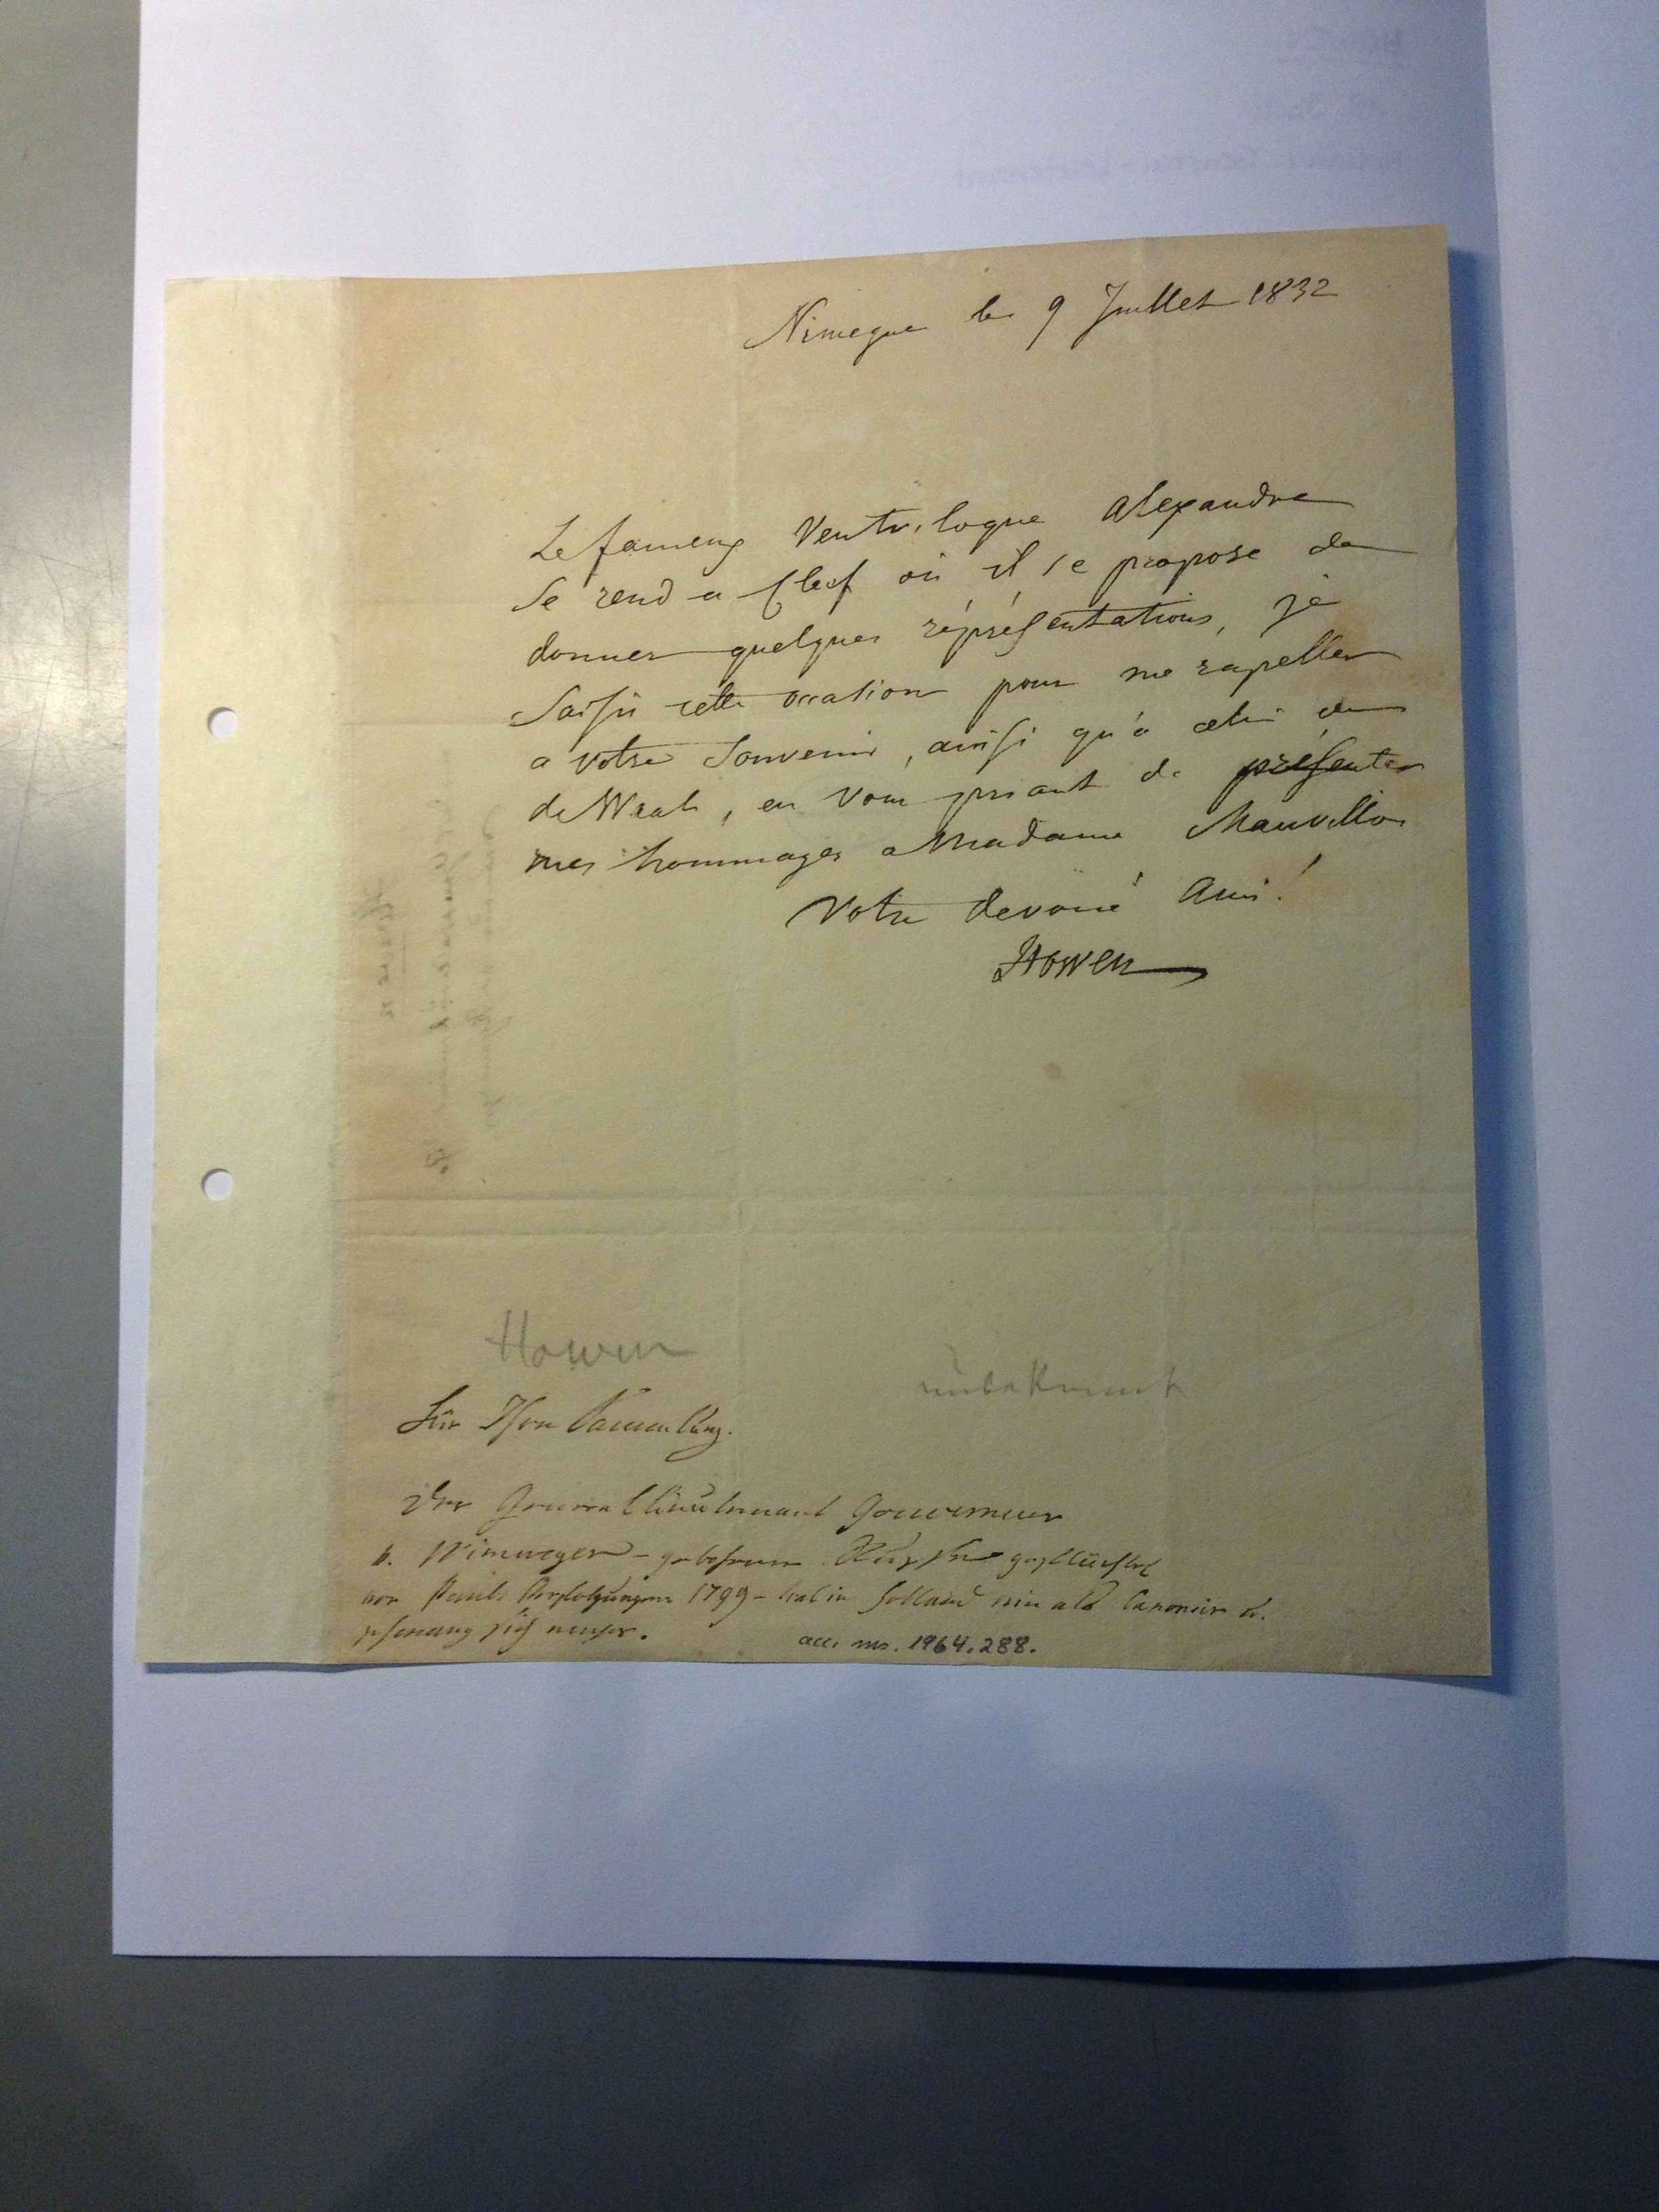 Nimegue le 9 Juillet 1832
Le fameux Ventriloque Alexandre
Se rend a Clef où il se propose de
donner quelques répréséntations, je
Saisis cette occation pour me rapeller
a votre Souvenir, ainsi qu'a celui de
de Weah, en vous priant de présenter
mes hommages a Madame Mauvillon
Votre devoué Ami!
Howen
Howen
unbekannt
Für Ihre Sammlung.
Der Generallieutenant Gouverneur
v. Nimwegen - geborener Russe geflüchtet
vor Pauls Verfolgungen 1799 - trat in Holland ein als Canonier u.
schwang sich empor.
acc. nr. 1964.288.